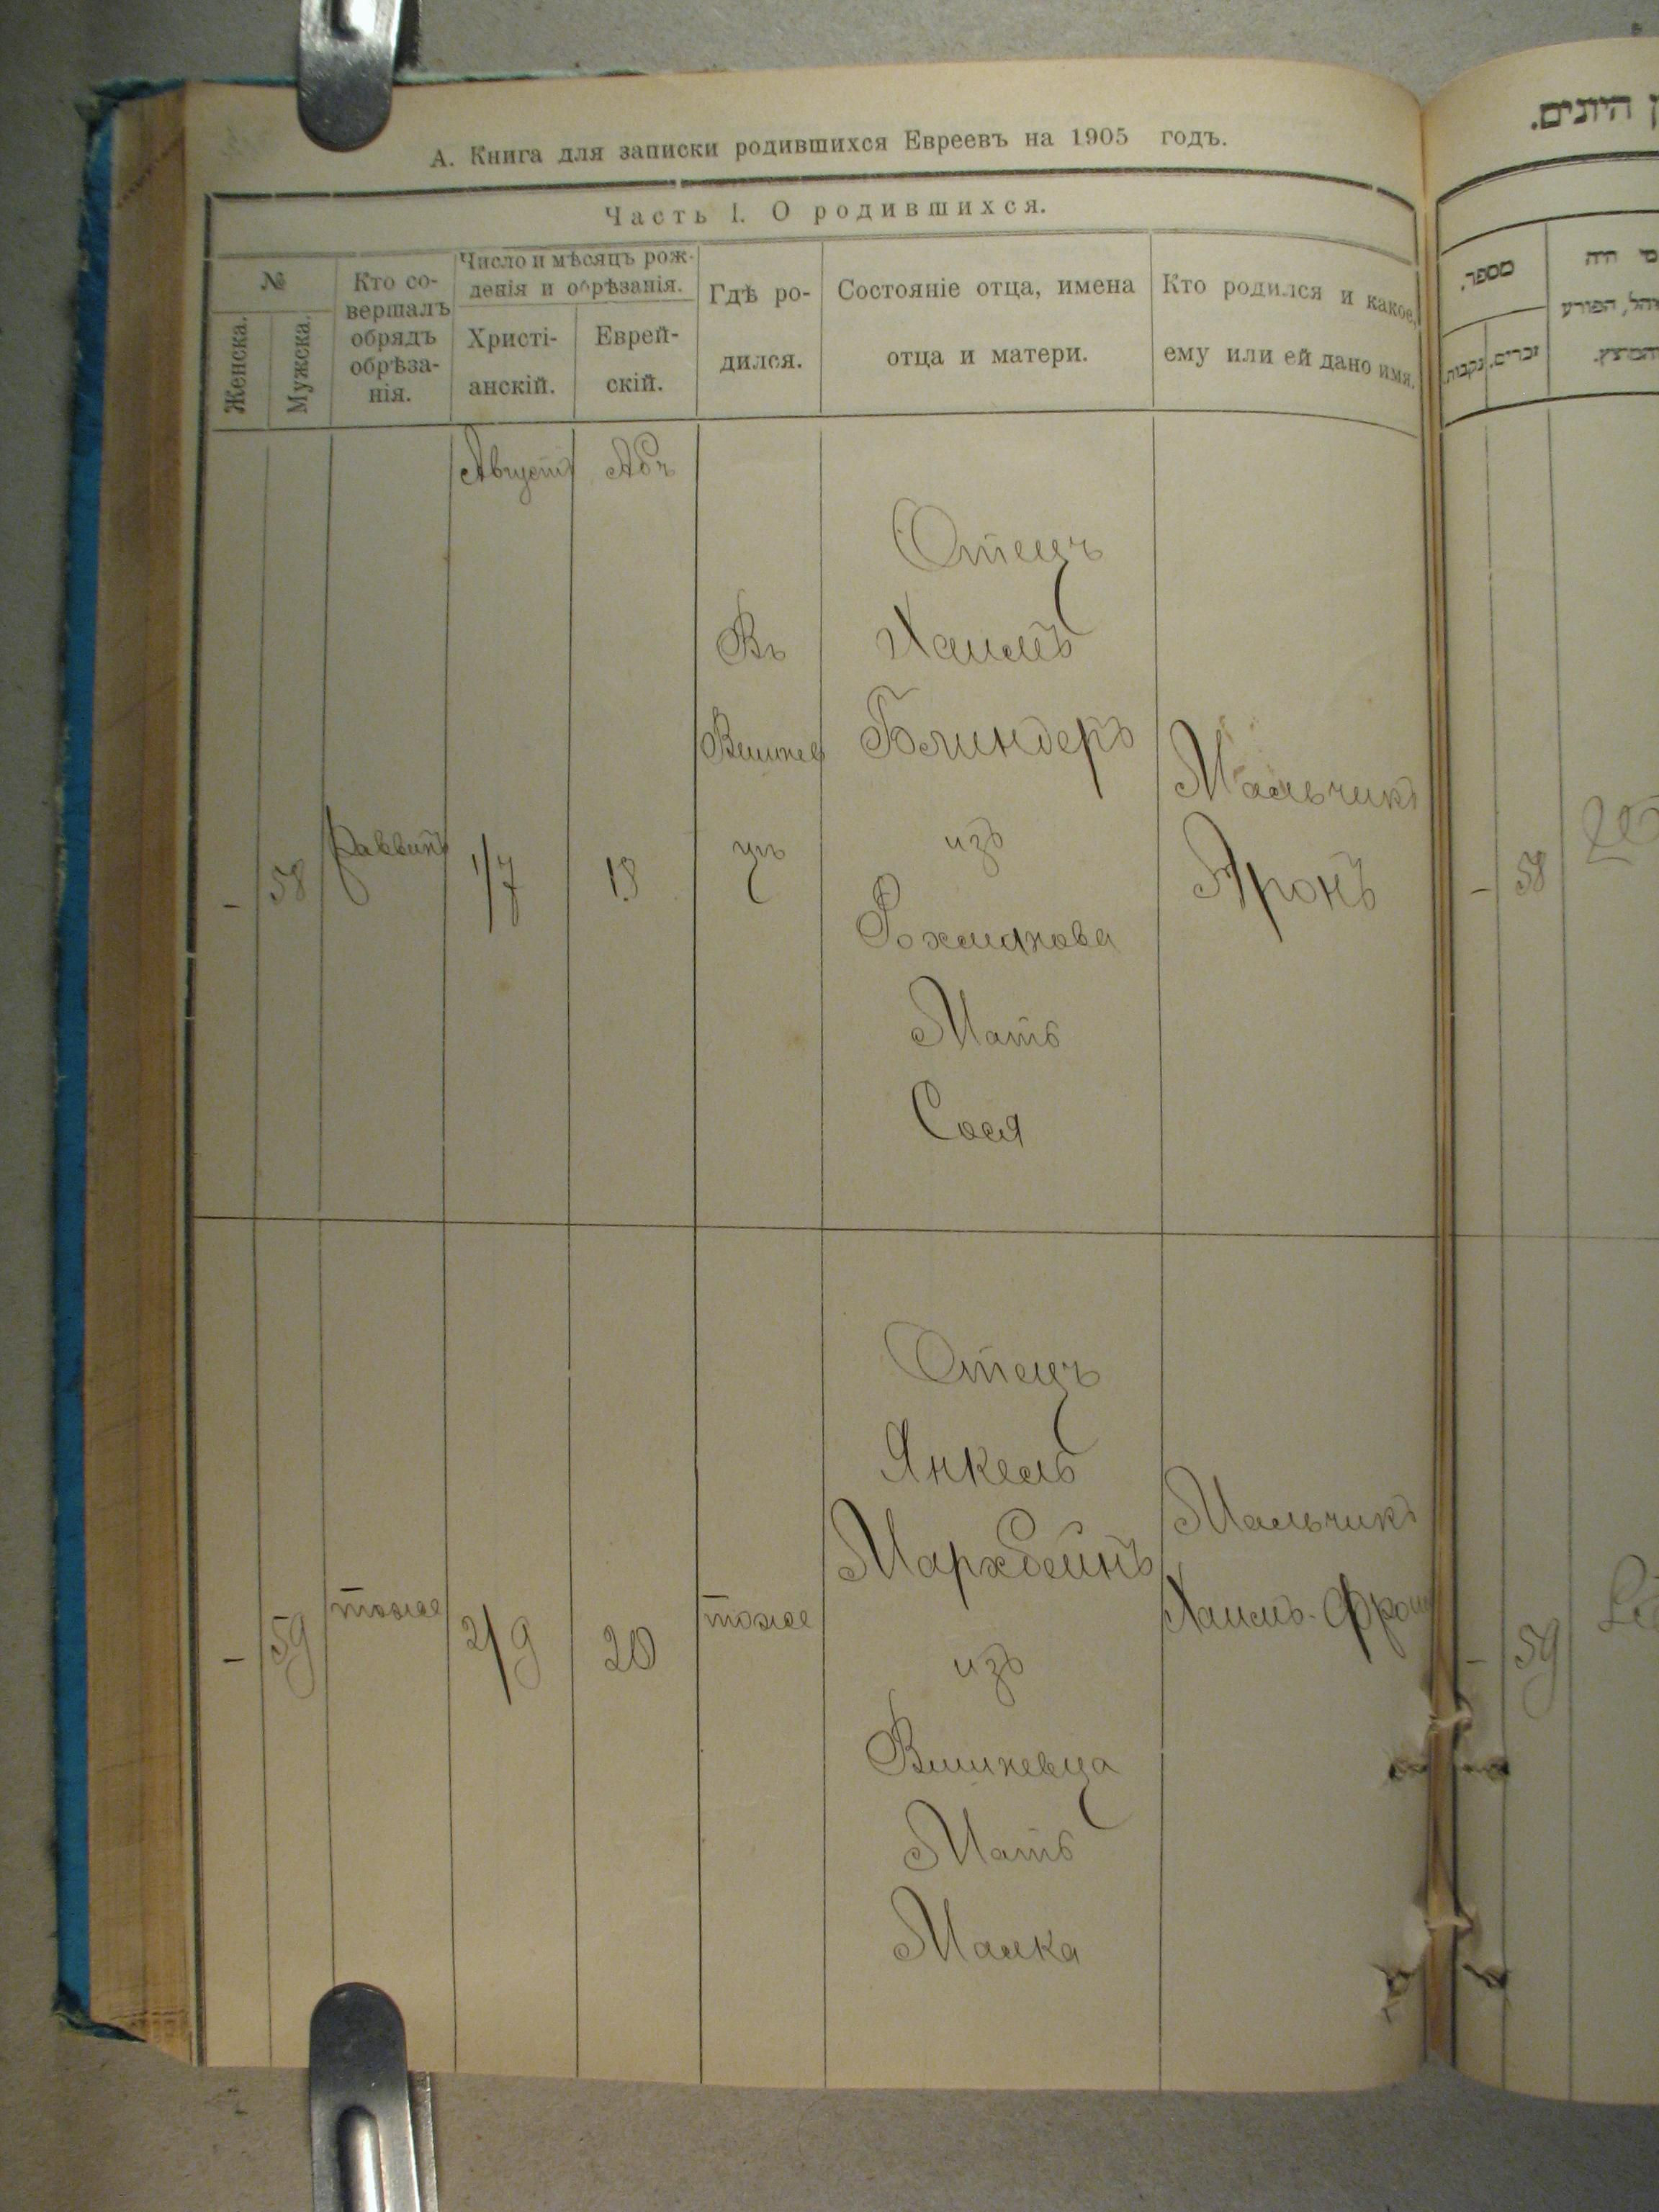 А. Книга для записки родившихся Евреевъ на 1905 годъ.
Часть I. О родившихся.
№
Женска.
Мужска.
Кто со-
вершалъ
обрядъ
обрѣза-
нія.
Число и мѣсяцъ рож-
денія и обрѣзанія.
Христі-
анскій.
Еврей-
скій.
Гдѣ ро-
дился.
Состояніе отца, имена
отца и матери.
Кто родился и какое,
ему или ей дано имя.
Августъ
Абъ
-
58
раввинъ
1/7
13
Въ
Вишнев
цѣ
Отецъ
Хаимъ
Блиндеръ
изъ
Рохманова
Мать
Сося
Мальчикъ
Аронъ
-
59
тоже
2/9
20
тоже
Отецъ
Янкель
Мархбейнъ
изъ
Вишневца
Мать
Малка
Мальчикъ
Хаимъ-
היתים.
מספר.
זכרים.
נקבות.
הפורע
והמוצץ.
-
58
-
59